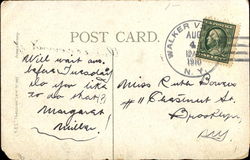 POST CARD.
WALKER V
AUG
4
1910
N.Y.
Will wait ans.
before Tuesday
do you like
to do that?
Margaret
Miller.
Miss Ruth
#11 Chestnut St.
Brooklyn,
N.Y.